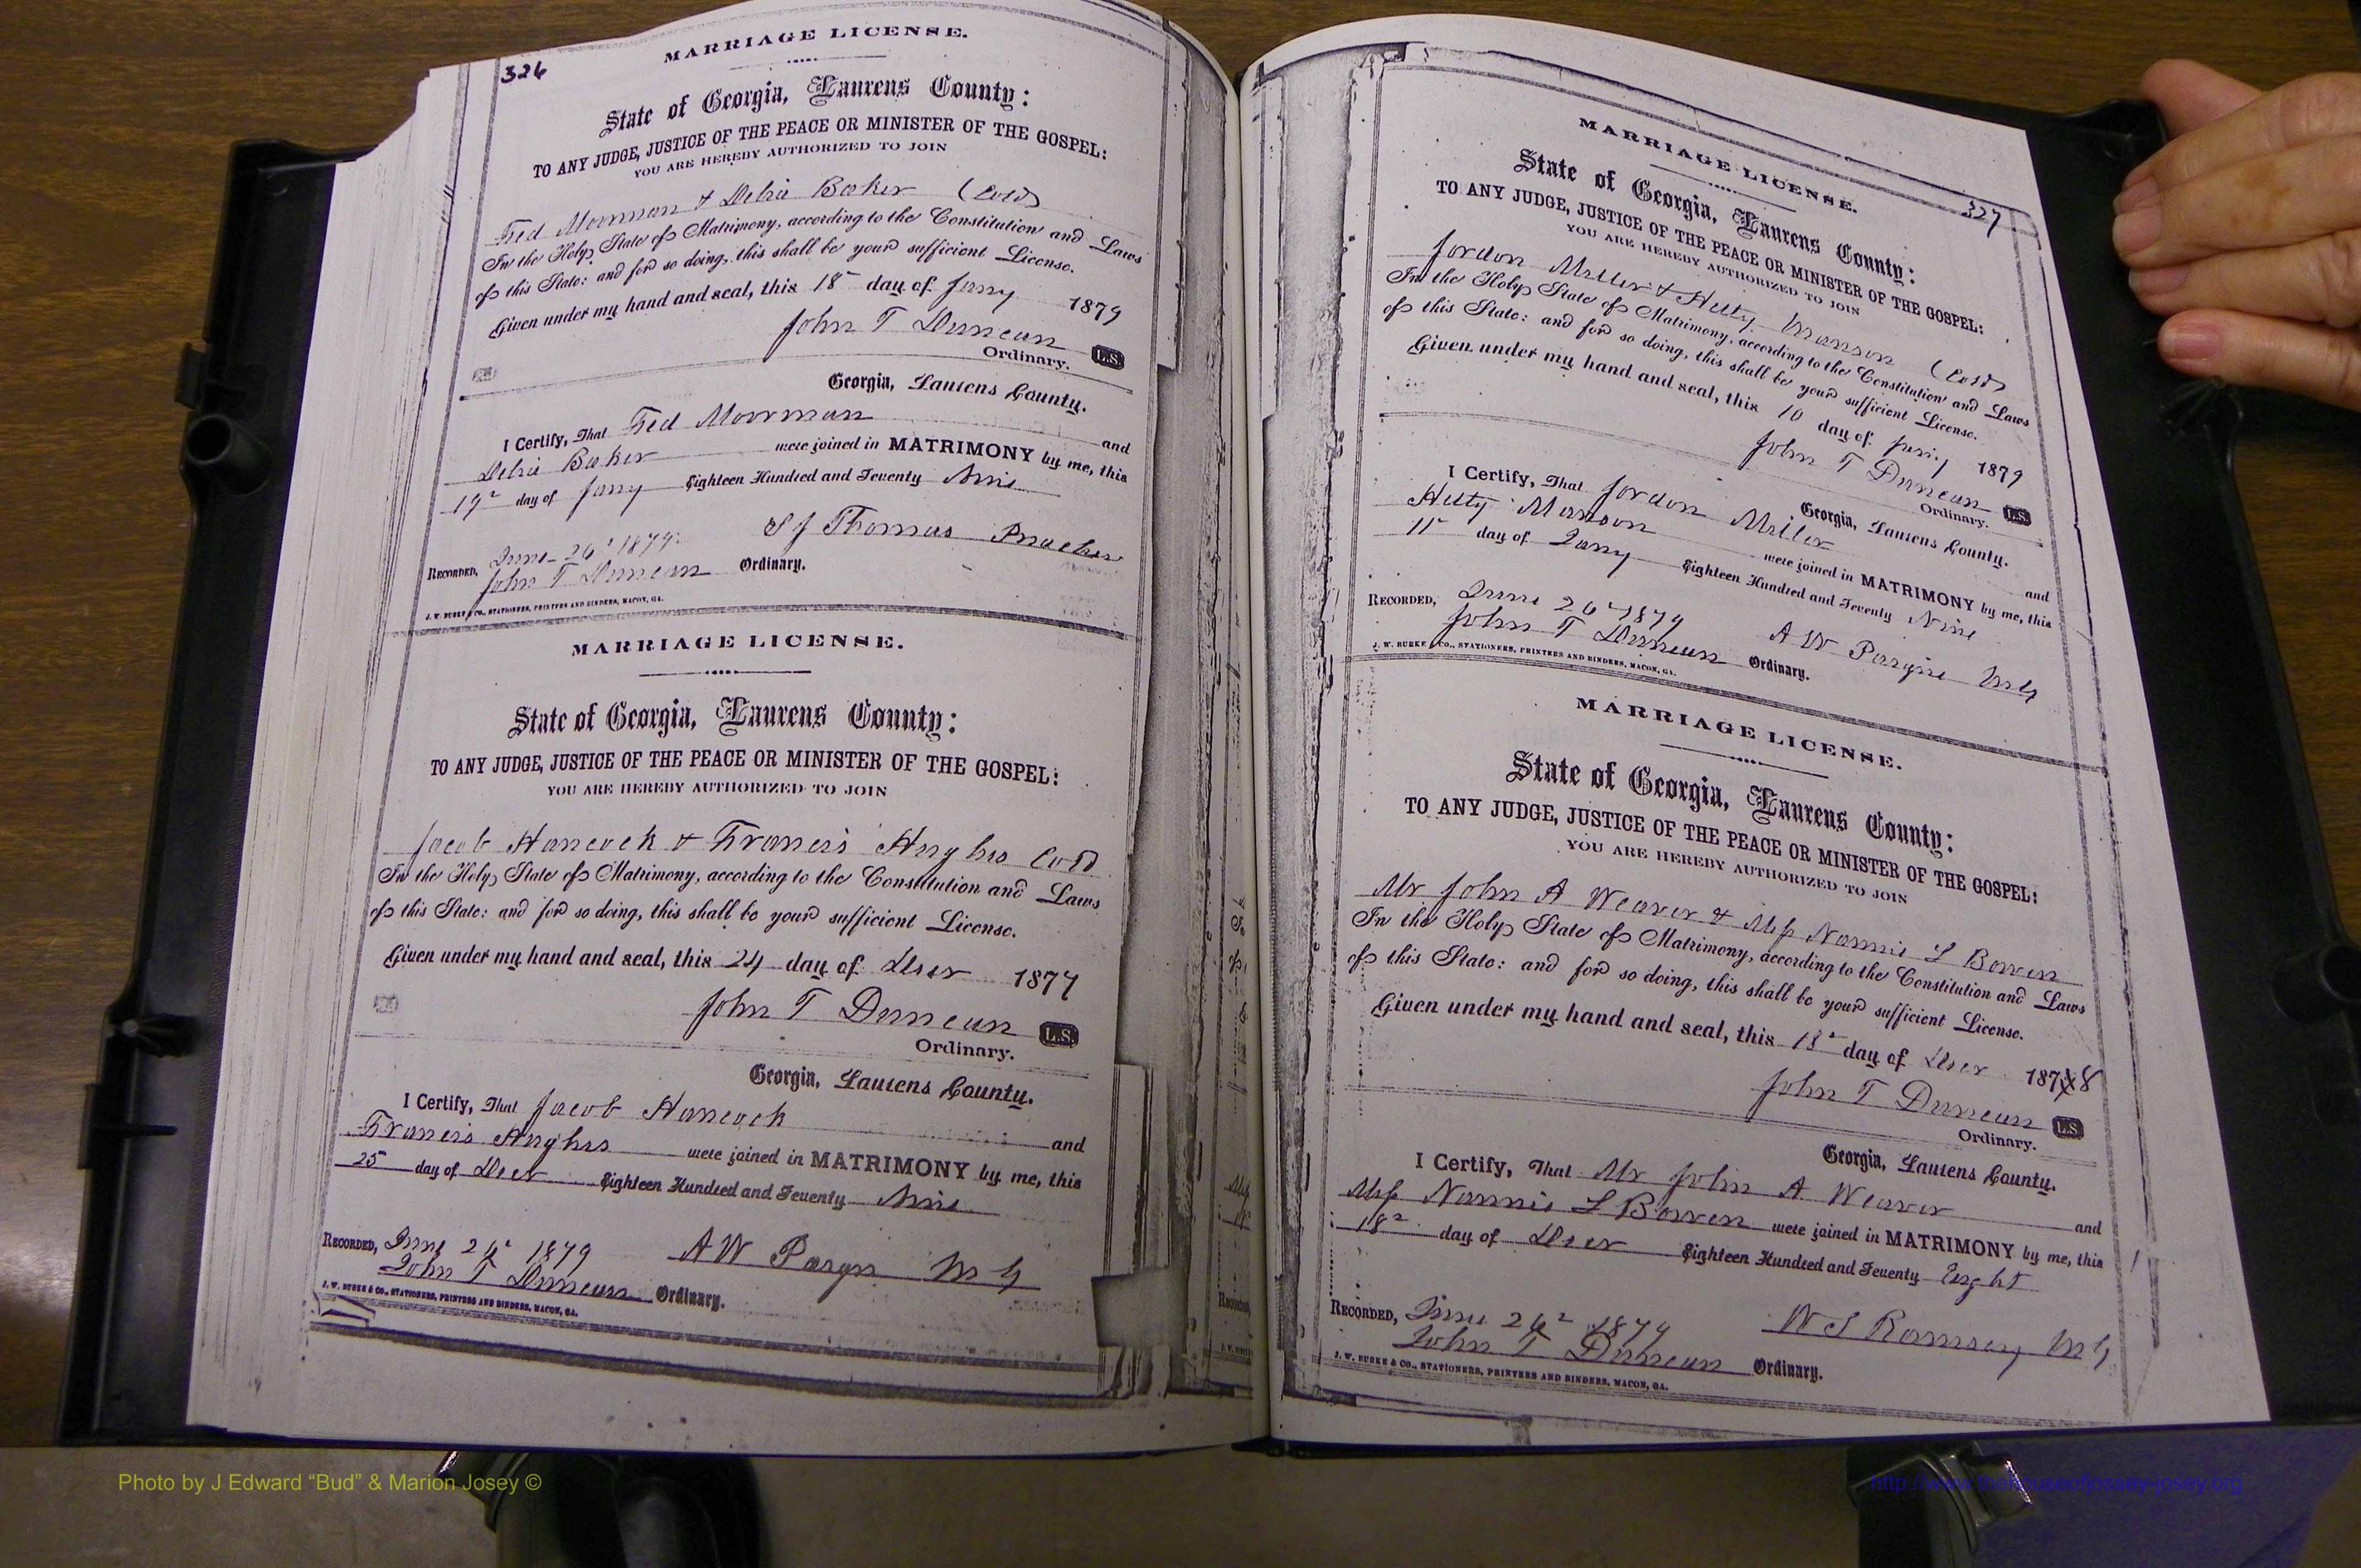 326
MARRIAGE LICENSE.
State of Georgia, Laurens County:
TO ANY JUDGE, JUSTICE OF THE PEACE OR MINISTER OF THE GOSPEL:
YOU ARE HEREBY AUTHORIZED TO JOIN
Fed Moorman & Delia Baker (Cold)
In the Holy State of Matrimony, according to the Constitution and Laws
of this State: and for so doing, this shall be your sufficient License.
Given under my hand and seal, this 18 day of Jany 1879
John T Duncan L.S.
Ordinary.
Georgia, Laurens County.
I Certify, That Fed Moorman and
Delia Baker were joined in MATRIMONY by me, this
19 day of Jany Eighteen Hundred and Seventy Nine
S J Thomas Preacher
RECORDED, June 26 1879
John T Duncan Ordinary.
J. W. BURKE & CO., STATIONERS, PRINTERS AND BINDERS, MACON, GA.
MARRIAGE LICENSE.
State of Georgia, Laurens County:
TO ANY JUDGE, JUSTICE OF THE PEACE OR MINISTER OF THE GOSPEL:
YOU ARE HEREBY AUTHORIZED TO JOIN
Jacob Hancock & Francis Hughs Cold
In the Holy State of Matrimony, according to the Constitution and Laws
of this State: and for so doing, this shall be your sufficient License.
Given under my hand and seal, this 24 day of Decr 1877
John T Duncan L.S.
Ordinary.
Georgia, Laurens County.
I Certify, That Jacob Hancock and
Francis Hughs were joined in MATRIMONY by me, this
25 day of Decr Eighteen Hundred and Seventy Nine
RECORDED, June 26 1879 A W Paryn M G
John T Duncan Ordinary.
J. W. BURKE & CO., STATIONERS, PRINTERS AND BINDERS, MACON, GA.
327
MARRIAGE LICENSE.
State of Georgia, Laurens County:
TO ANY JUDGE, JUSTICE OF THE PEACE OR MINISTER OF THE GOSPEL:
YOU ARE HEREBY AUTHORIZED TO JOIN
Jordon Miller & Hetty Manson (Cold)
In the Holy State of Matrimony, according to the Constitution and Laws
of this State: and for so doing, this shall be your sufficient License.
Given under my hand and seal, this 10 day of Jany 1879
John T Duncan L.S.
Ordinary.
Georgia, Laurens County.
I Certify, That Jordon Miller and
Hetty Manson were joined in MATRIMONY by me, this
11 day of Jany Eighteen Hundred and Seventy Nine
RECORDED, June 26 1879 A W Paryne M G
John T Duncan Ordinary.
J. W. BURKE & CO., STATIONERS, PRINTERS AND BINDERS, MACON, GA.
MARRIAGE LICENSE.
State of Georgia, Laurens County:
TO ANY JUDGE, JUSTICE OF THE PEACE OR MINISTER OF THE GOSPEL:
YOU ARE HEREBY AUTHORIZED TO JOIN
Mr John A Weaver & Miss Nannie L Bowen
In the Holy State of Matrimony, according to the Constitution and Laws
of this State: and for so doing, this shall be your sufficient License.
Given under my hand and seal, this 18 day of Decr 1878
John T Duncan L.S.
Ordinary.
Georgia, Laurens County.
I Certify, That Mr John A Weaver and
Miss Nannie L Bowen were joined in MATRIMONY by me, this
18 day of Decr Eighteen Hundred and Seventy Eight
RECORDED, June 26 1879 W S Ramsey M G
John T Duncan Ordinary.
J. W. BURKE & CO., STATIONERS, PRINTERS AND BINDERS, MACON, GA.
Photo by J Edward “Bud” & Marion Josey ©
http://www.thehouseofjossey-josey.org